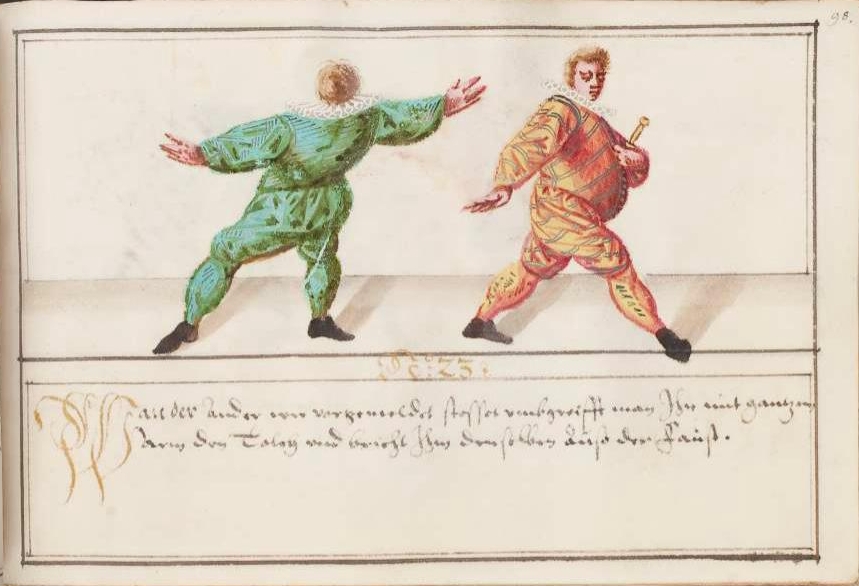 98.
N: 23:
Wan der ander wie vorgemeldet stosset umbgreifft man Ihn mit gantzem
arm den Tolch und bricht Ihm denselben auss der Faust.